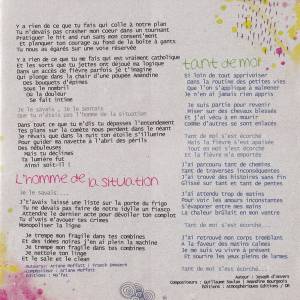 Y a rien de ce que tu fais qui colle à notre plan
Tu n'devais pas crasher mon coeur dans un tournant
Pratiquer le hit and run sans mon consent'ment
Et planquer ton courage au fond de la boîte à gants
Tu nous as égarés sur une voie réservée
Y a rien de ce que tu fais qui est vraiment catholique
Et les sorts que tu jettes ont déjoué ma logique
Dans un accès de fièvre parfois je t'imagine
Qui plonge dans la chair d'une poupée Amandine
Des bouquets d'épines
sous le nombril
où la douleur
Se fait intime
Je le savais, je le sentais
que tu n'étais pas l'homme de la situation
Dans tout ce que tu m'dis tu dépenses l'entendement
Tes plans sur la comète nous pendent dans le néant
Je rêvais que dans la nuit ton étoile s'illumine
Pour guider ma navette à l'abri des périls
Des nébuleuses
Mais tu déclines
Ta lumière fut
Ainsi soit-il !
L'homme de la situation
Je le savais...
J'n'avais laissé une liste sur la porte du frigo
Tu ne devais pas faire de notre idylle un fiasco
Attendre le dernier acte pour dévoiler ton complot
Tu d'vais m'avouer tes crimes
Monopoliser la ligne
Je trempe mon fragile dans tes combines
Et des idées noires j'en ai plein la machine
Je trempe mon fragile dans tes combines
Je nettoie ton linge
Et le sale et le clean
Auteurs : Ariane Moffatt / Franck Deweare
Compositeur : Ariane Moffatt
Editions : Mo'fat
tant de moi
Si loin de tout apprivoiser
Dans la routine des petites vies
Que l'on s'applique à malmener
Je n'en ai jamais rien appris
Je suis partie pour revenir
Miser sur des chevaux blessés
Et j'ai vécu à en mourir
Comme d'autres se sont enlacés
Tant de moi s'est écorché
Mais la fièvre s'est apaisée
Tant de moi s'est écorché
Et la fièvre m'a emportée
J'ai parcouru tant de chemins
tant de traverses inconséquentes
J'ai troué des histoires sans fin
Glissé sur tant et tant de pentes
J'ai attendu trop de matins
Pour voir les aubes incandescentes
S'emporter entre mes mains
La chaleur brûlant en mon ventre
Tant de moi s'est écorché...
J'ai retrouvé mon corps tremblant
A la faveur des matins calmes
Je me suis vu vivre à présent
Et sourire les yeux pleins de larmes
Tant de moi s'est écorché...
Auteur : Joseph d'Anvers
Compositeurs : Guillaume Soulan / Amandine Bourgeois
Editions : Atmosphériques / DR